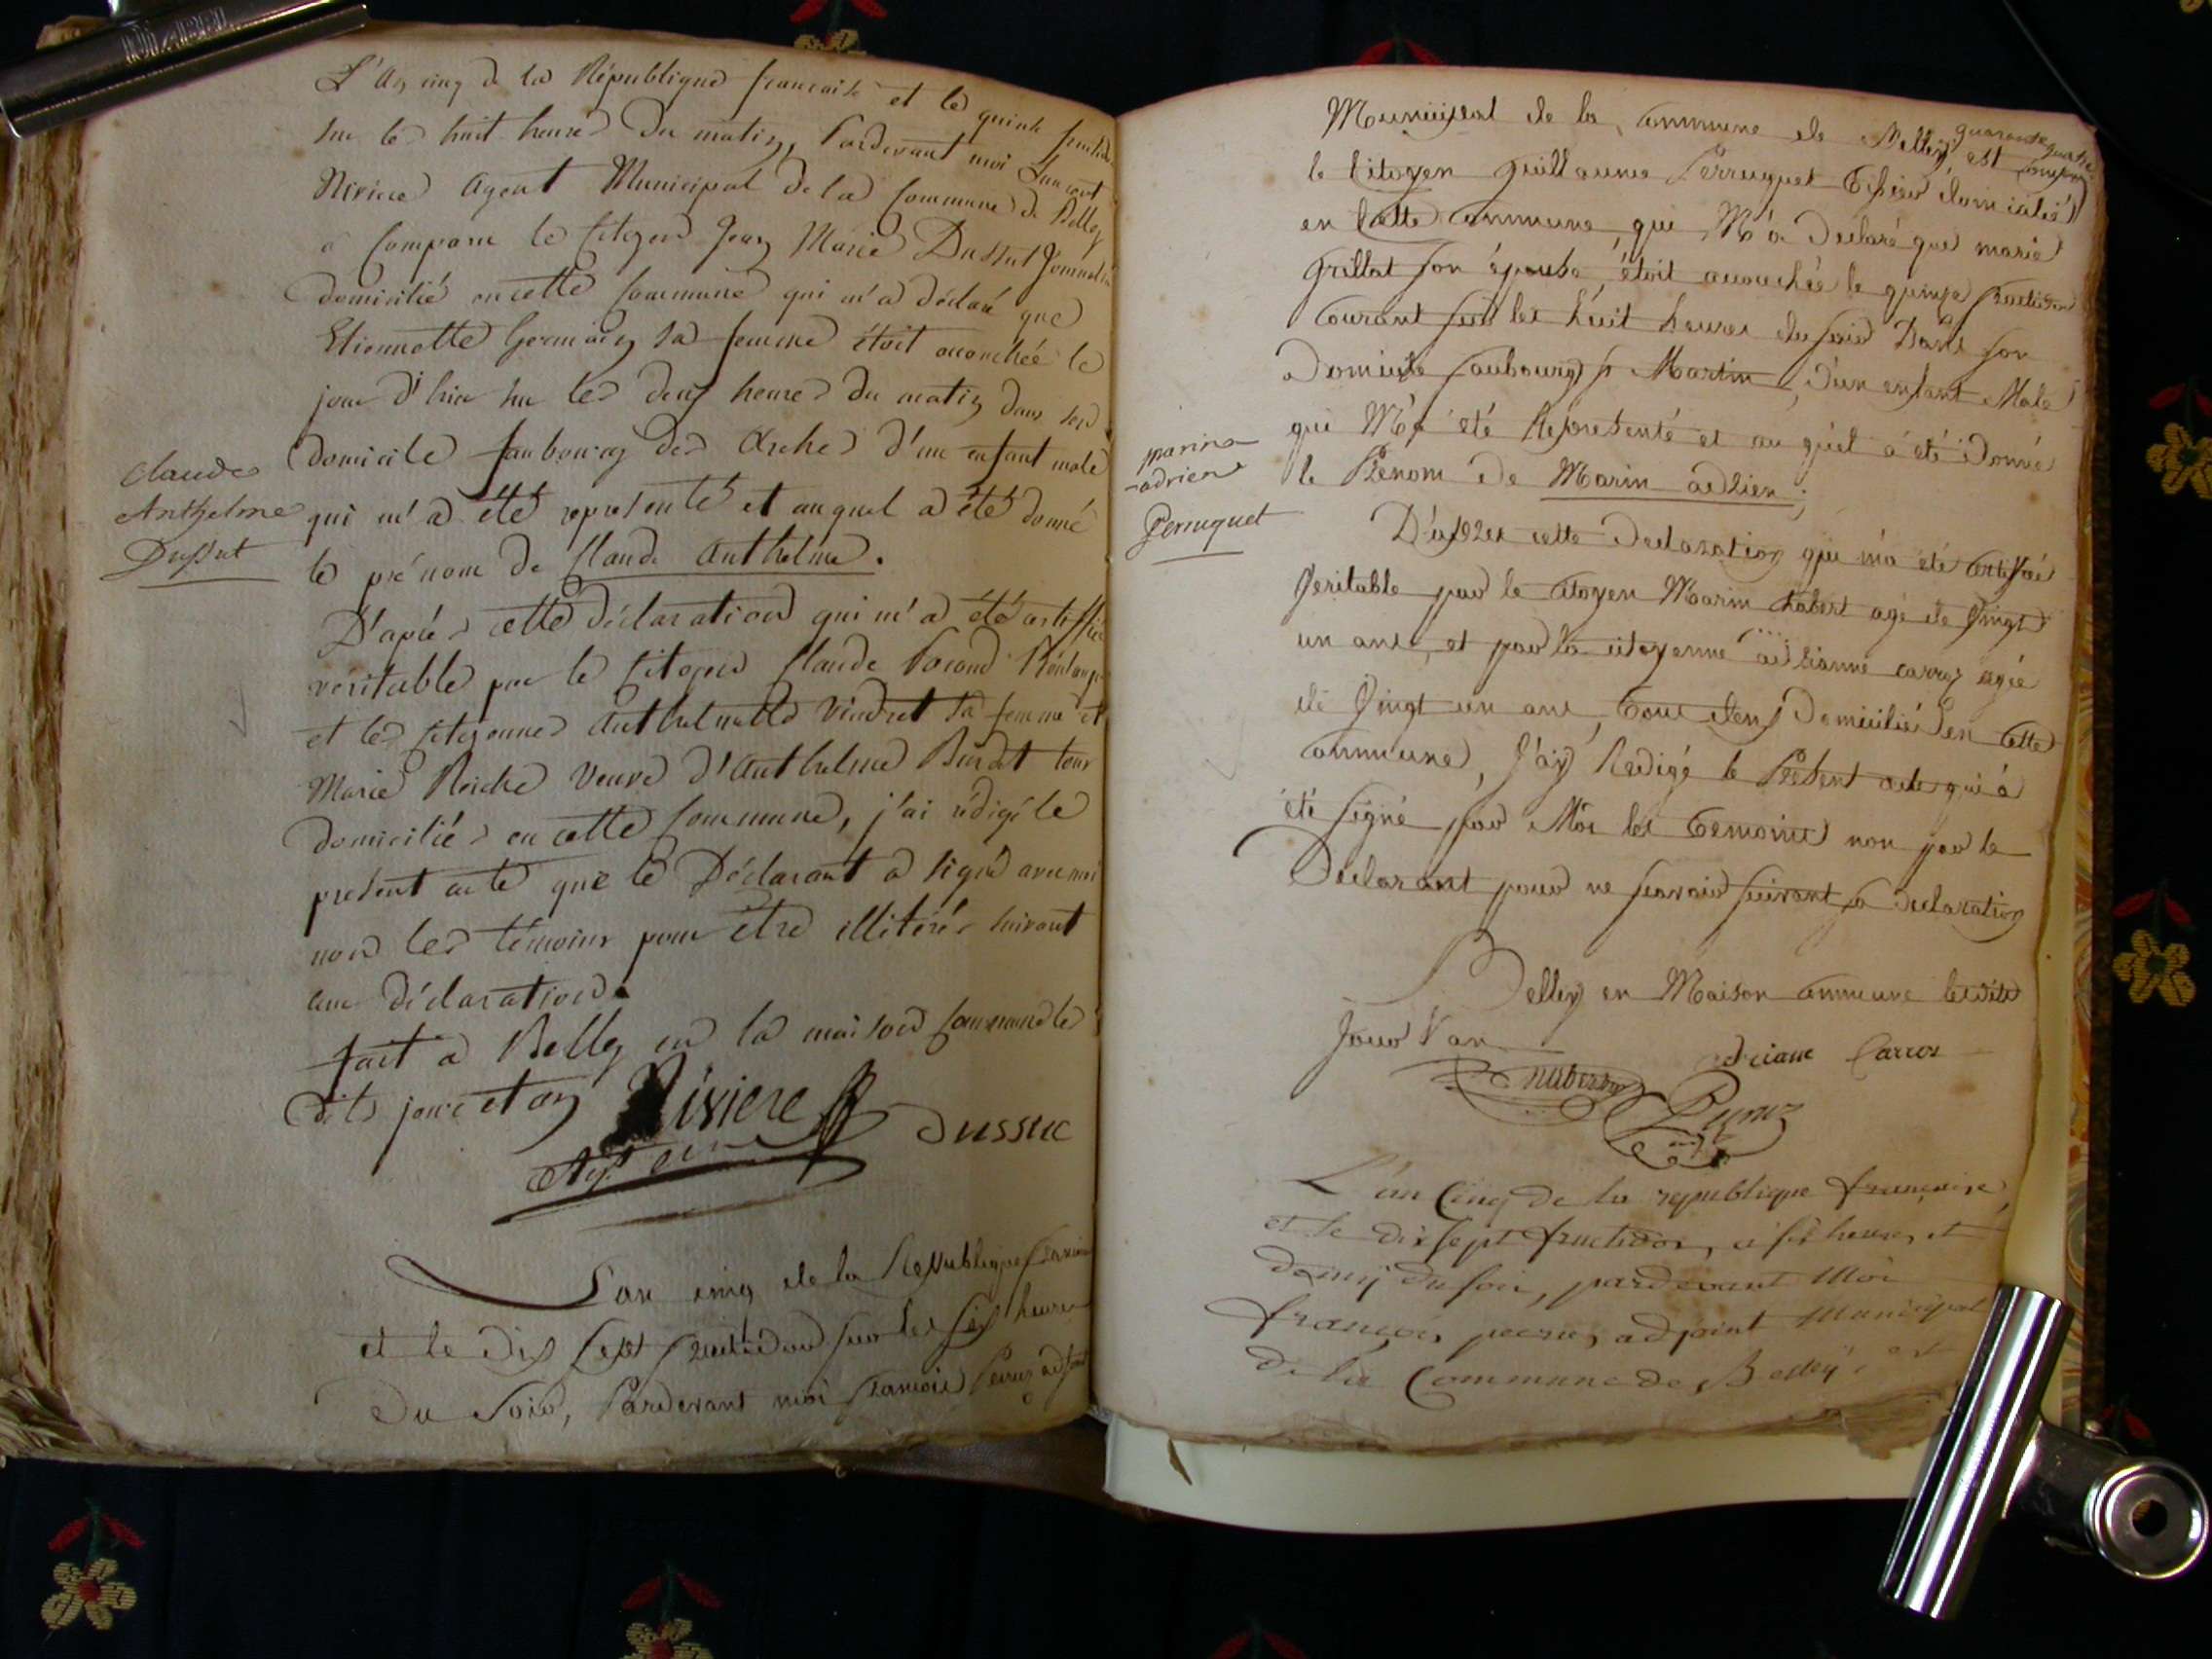 L'An cinq de la République francaise et le quinze fructidor
sur les huit heures du matin, Pardevant moi
Riviere Agent Municipal de la Commune de Belley
a Comparu le Citoyen Jean Marie Dussut Journalier
domicilié en cette Commune qui m'a déclaré que
Etiennette Germain sa femme étoit accouchée le
jour d'hier sur les deux heures du matin dans son
domicile faubourg des Arches d'un enfant male
Claude
Anthelme
Dussut
qui m'a été représenté et auquel a été donné
le prénom de Claude Anthelme.
D'après cette déclaration qui m'a été certiffiée
veritable par le Citoyen Claude
et les Citoyennes Anthelmette Vindret sa femme et
Marie Roche Veuve d'Anthelme Burdet tous
domiciliés en cette Commune, j'ai rédigé le
present acte que le Déclarant a signé avec moi
non les témoins pour être illitérés suivant
leur déclaration.
fait a Belley en la maison Commune les
dits jour et an
Riviere
Dussuc
Agt
L'an cinq de la Republique francaise
et le dix sept fructidor sur les six heures
Du Soir, Pardevant moi francois Peruz adjoint
quarante quatre
Municipal de la Commune de Belley est comparu
le Citoyen Guillaume Perruquet Tissier domicialié
en Cette Commune, qui M'a Declaré que marie
Grillat son épouse, étoit accouchée le quinze fructidor
Courant sur les huit heures du soir Dans son
Domicile faubourg st Martin, d'un enfant Male
qui M'a été Représenté et au quel a été Donné
le Prénom de Marin adrien;
marin
adrien
Perruquet
D'après cette Declaration qui m'a été certifiée
Veritable par le citoyen Marin hubert agé de Vingt
un ans, et par la citoyenne adrianne carroz agée
de Vingt un ans, Tous deux Domiciliés en Cette
Commune, J'ay Redigé le Présent acte qui à
été signé par Moi les Temoins non par le
Declarant pour ne scavoir suivant sa declaration
Belley en Maison Commune lesdits
Jour & an
adriane Carroz
hubert
Peruz
L'an Cinq de la republique française,
et le dix sept fructidor, à six heures et
demy du soir, pardevant Moi
françois peruz, adjoint Municipal
de la Commune de Belley, est